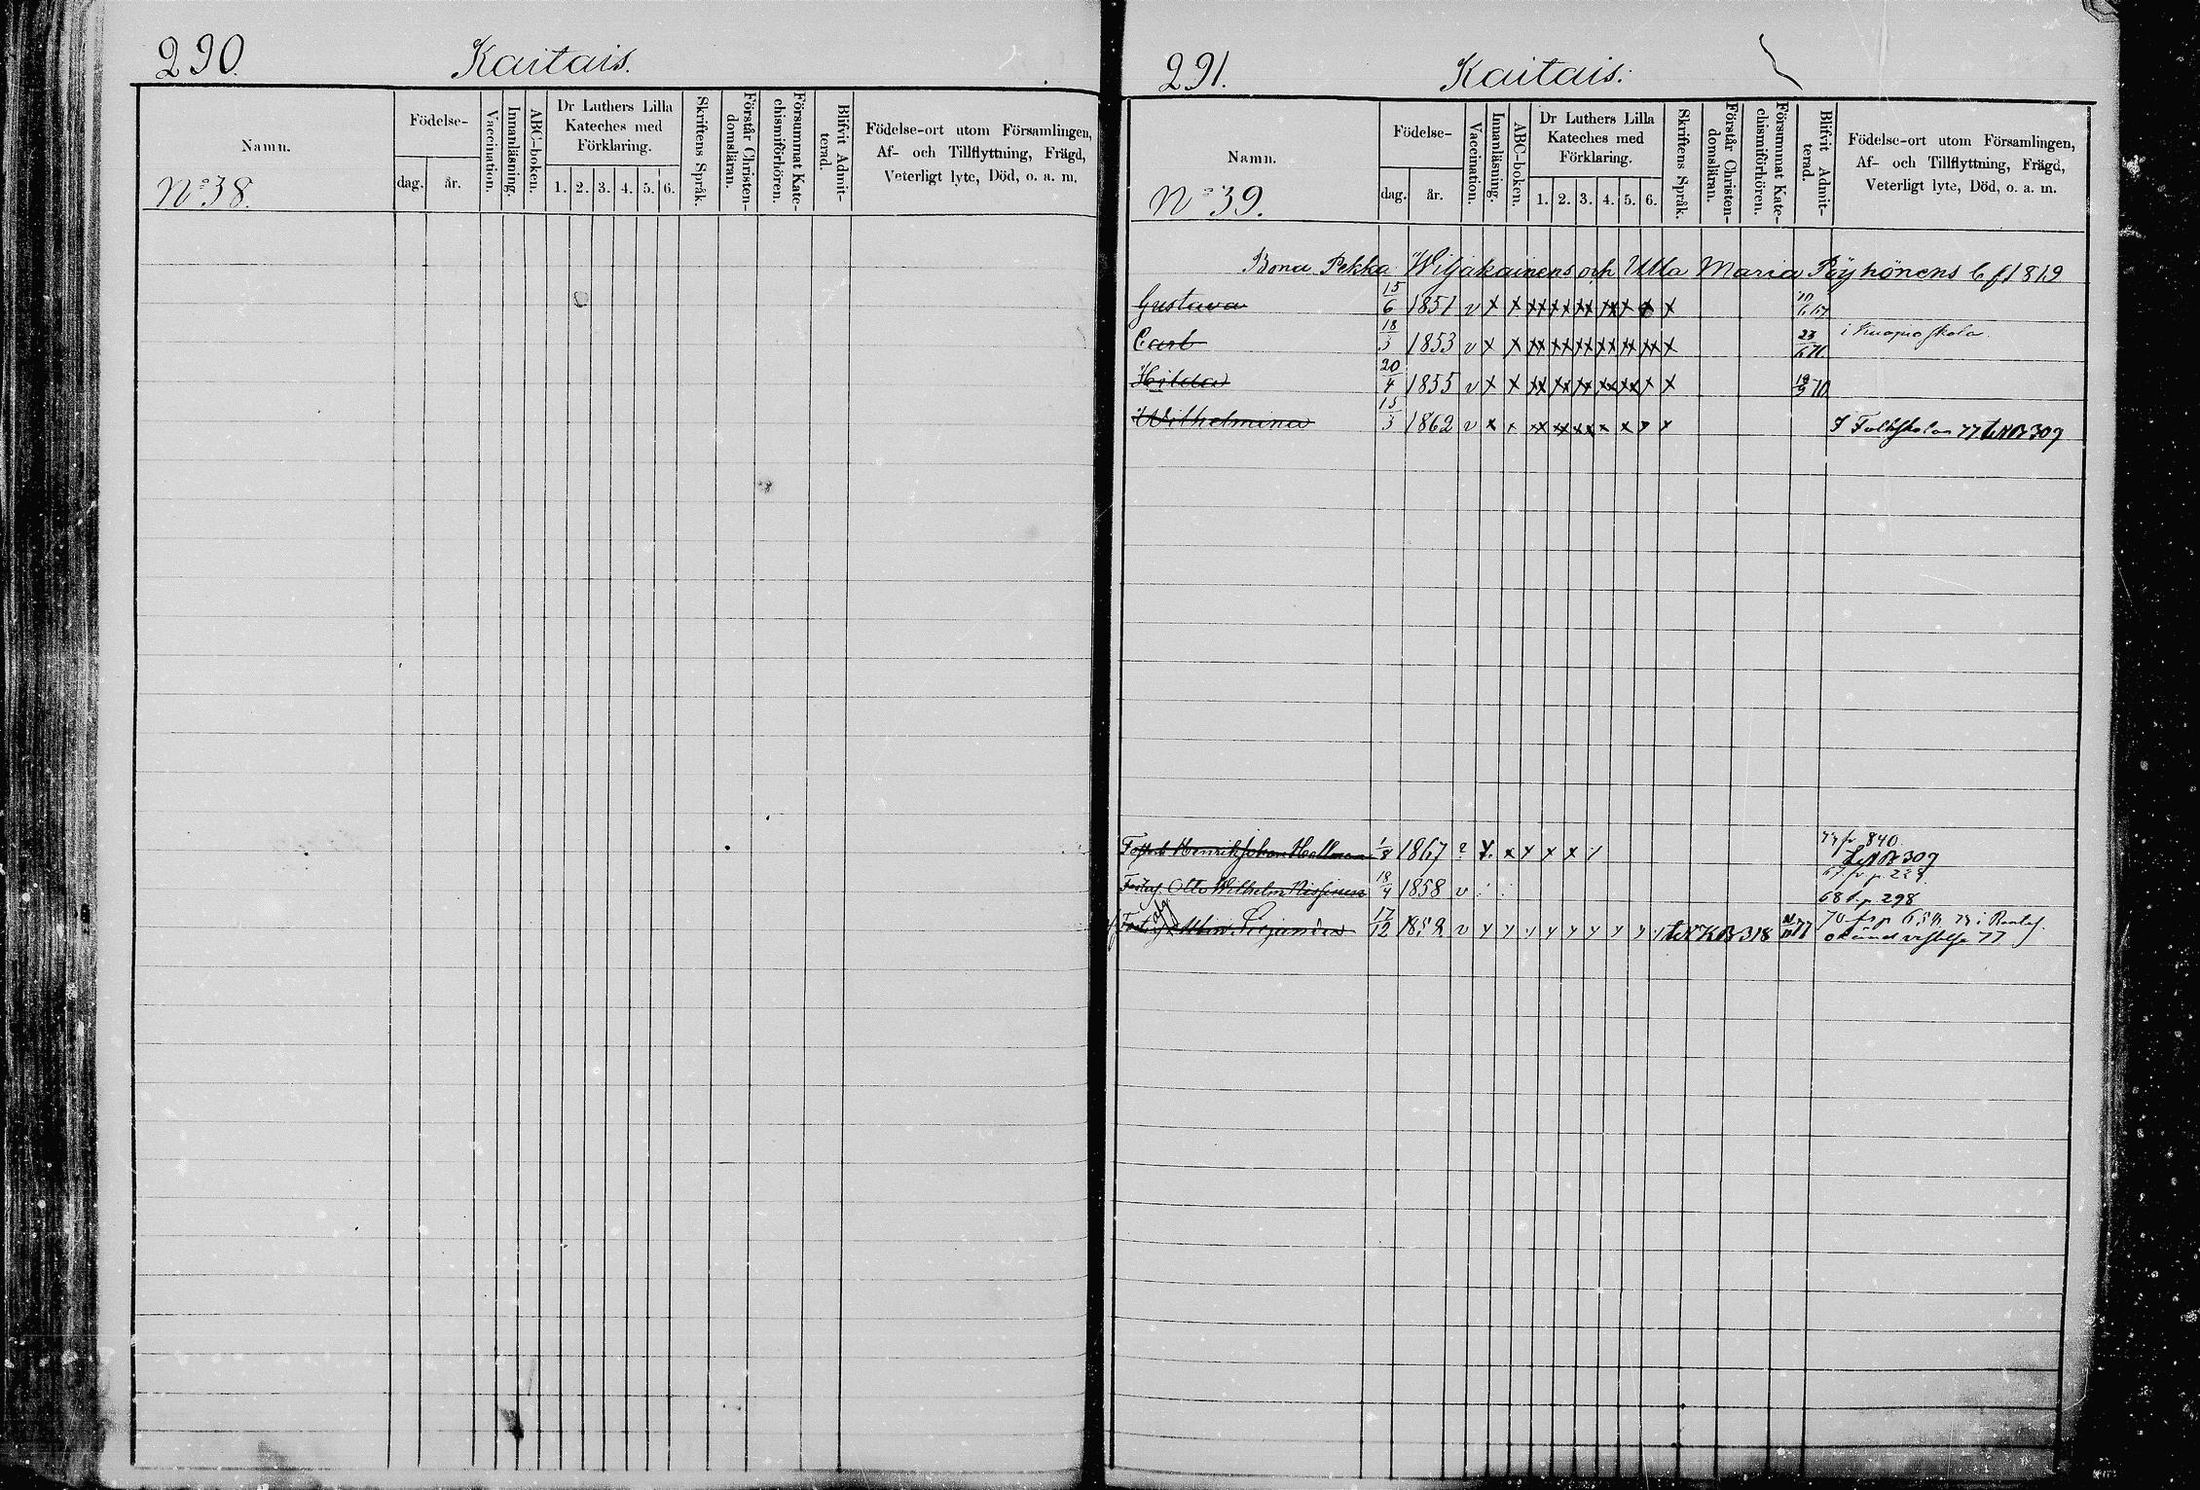 290.
Kaitais.
Namn.
Födelse-
dag.
år.
Vaccination.
Innanläsning.
ABC-boken.
Dr Luthers Lilla
Kateches med
Förklaring.
1. 2. 3. 4. 5. 6.
Skriftens Språk.
Förstår Christen-
domsläran.
Försummat Kate-
chismiförhören.
Blifvit Admit-
terad.
Födelse-ort utom Församlingen,
Af- och Tillflyttning, Frägd,
Veterligt lyte, Död, o. a. m.
No 38.
291.
Kaitais.
Namn.
Födelse-
dag.
år.
Vaccination.
Innanläsning.
ABC-boken.
Dr Luthers Lilla
Kateches med
Förklaring.
1. 2. 3. 4. 5. 6.
Skriftens Språk.
Förstår Christen-
domsläran.
Försummat Kate-
chismiförhören.
Blifvit Admit-
terad.
Födelse-ort utom Församlingen,
Af- och Tillflyttning, Frägd,
Veterligt lyte, Död, o. a. m.
No 39.
Bond Pekka Wiljakainens och Ulla Maria Pöyhönens b. f 1819
Gustava 15/6 1851 v x x xx xx xx xx x x x
Carl 18/3 1853 v x x xx xx xx xx xx xx x i Kuopio skola
Hilda 20/4 1855 v x x xx xx xx xx xx x x
Wilhelmina 15/3 1862 v x x xx xx xx x x x x I Folkskolan 77 309
Henrik Johan Hallman 1/8 1867 x x x x 77 fr 840
309
Otto Wilhelm Nissinen 18/4 1858 v 67 fr p. 228
68 t. p 298
17/12 1852 v KB 318 77